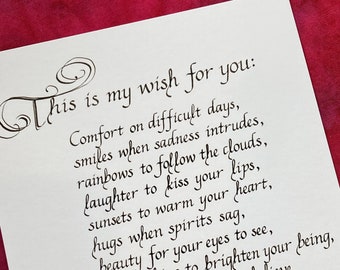 This is my wish for you:
Comfort on difficult days,
smiles when sadness intrudes,
rainbows to follow the clouds,
laughter to kiss your lips,
sunsets to warm your heart,
hugs when spirits sag,
beauty for your eyes to see,
to brighten your being,